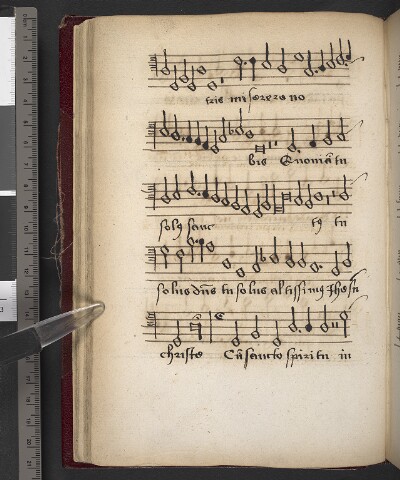 tris miserere no
bis Quoniā tu
solꝰ sanc tꝰ tu
solus dñs tu solus altissimꝰ Jhesu
christe Cū sancto spiritu in